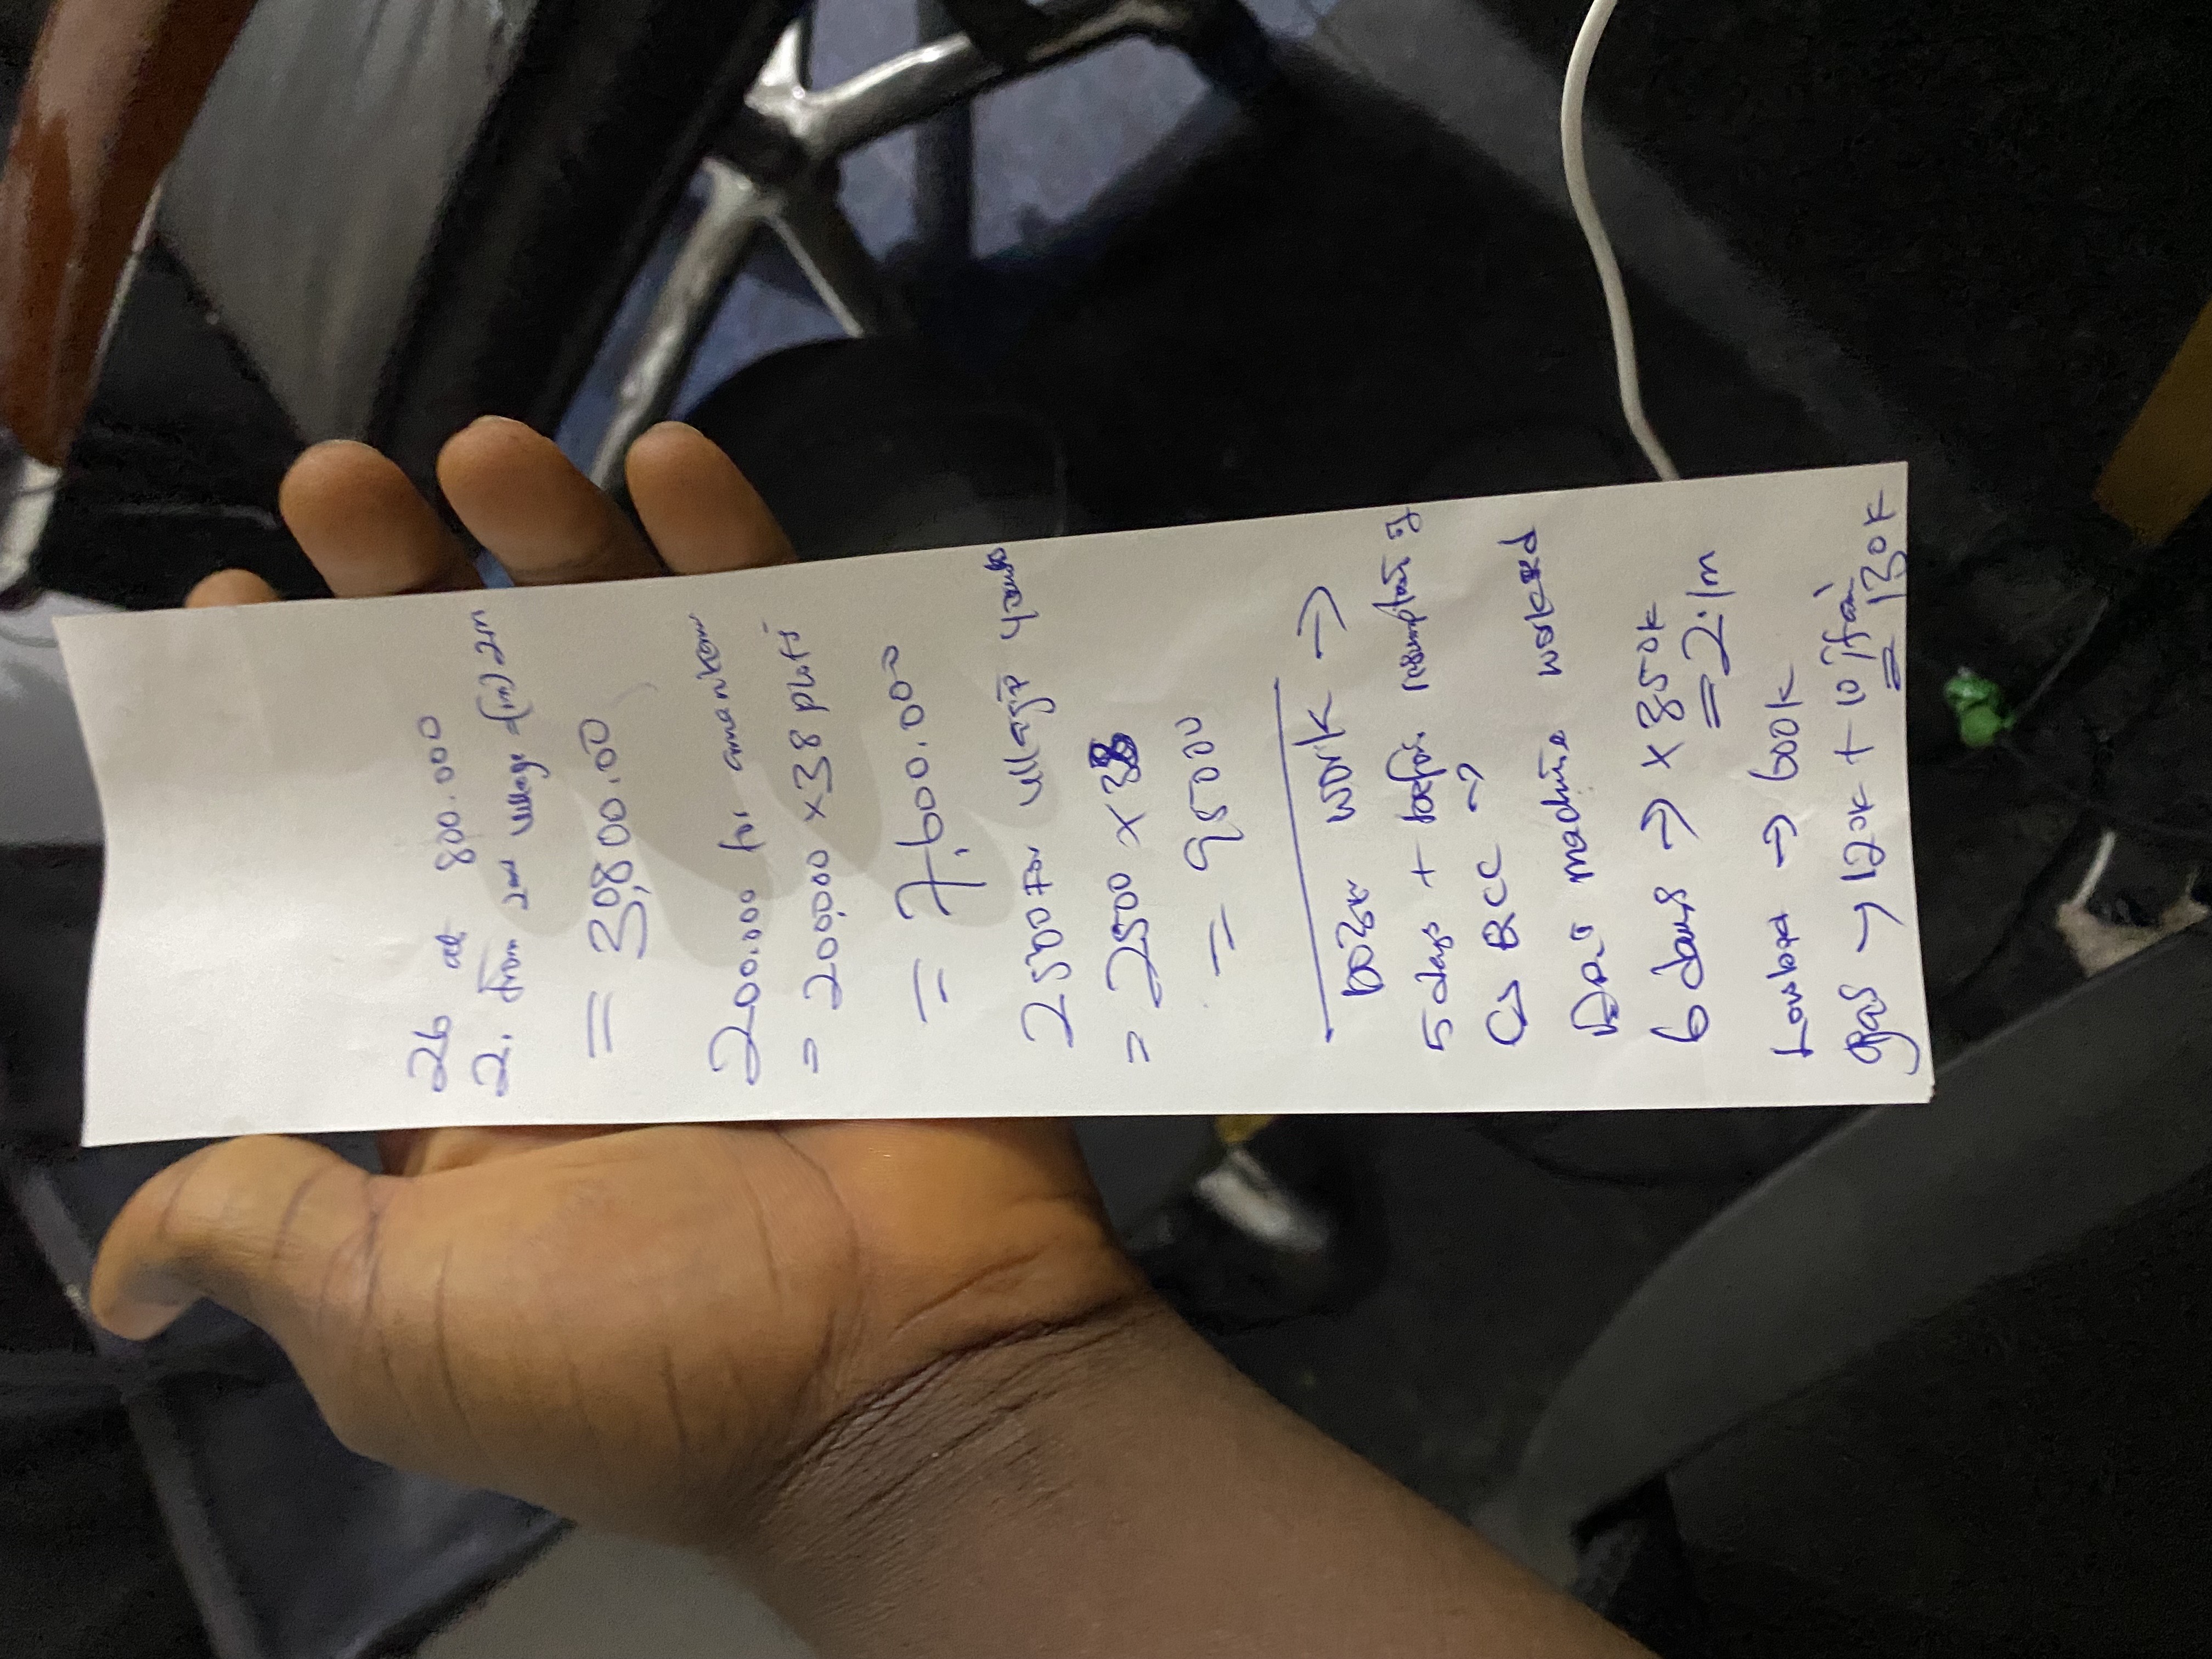 26 at 800.000
2. from 2nd village (1m) 2m
= 30,800.00
200.000 for
= 200,000 x 38 plots
= 7,600.000
2500 for village
= 2500 x 38
= 95000
work →
5 days + before resumption of
BCC →
Days machine worked
6 days → x 350k
= 2.1m
Lowbed → 600k
gas → 120k + 10
= 130k